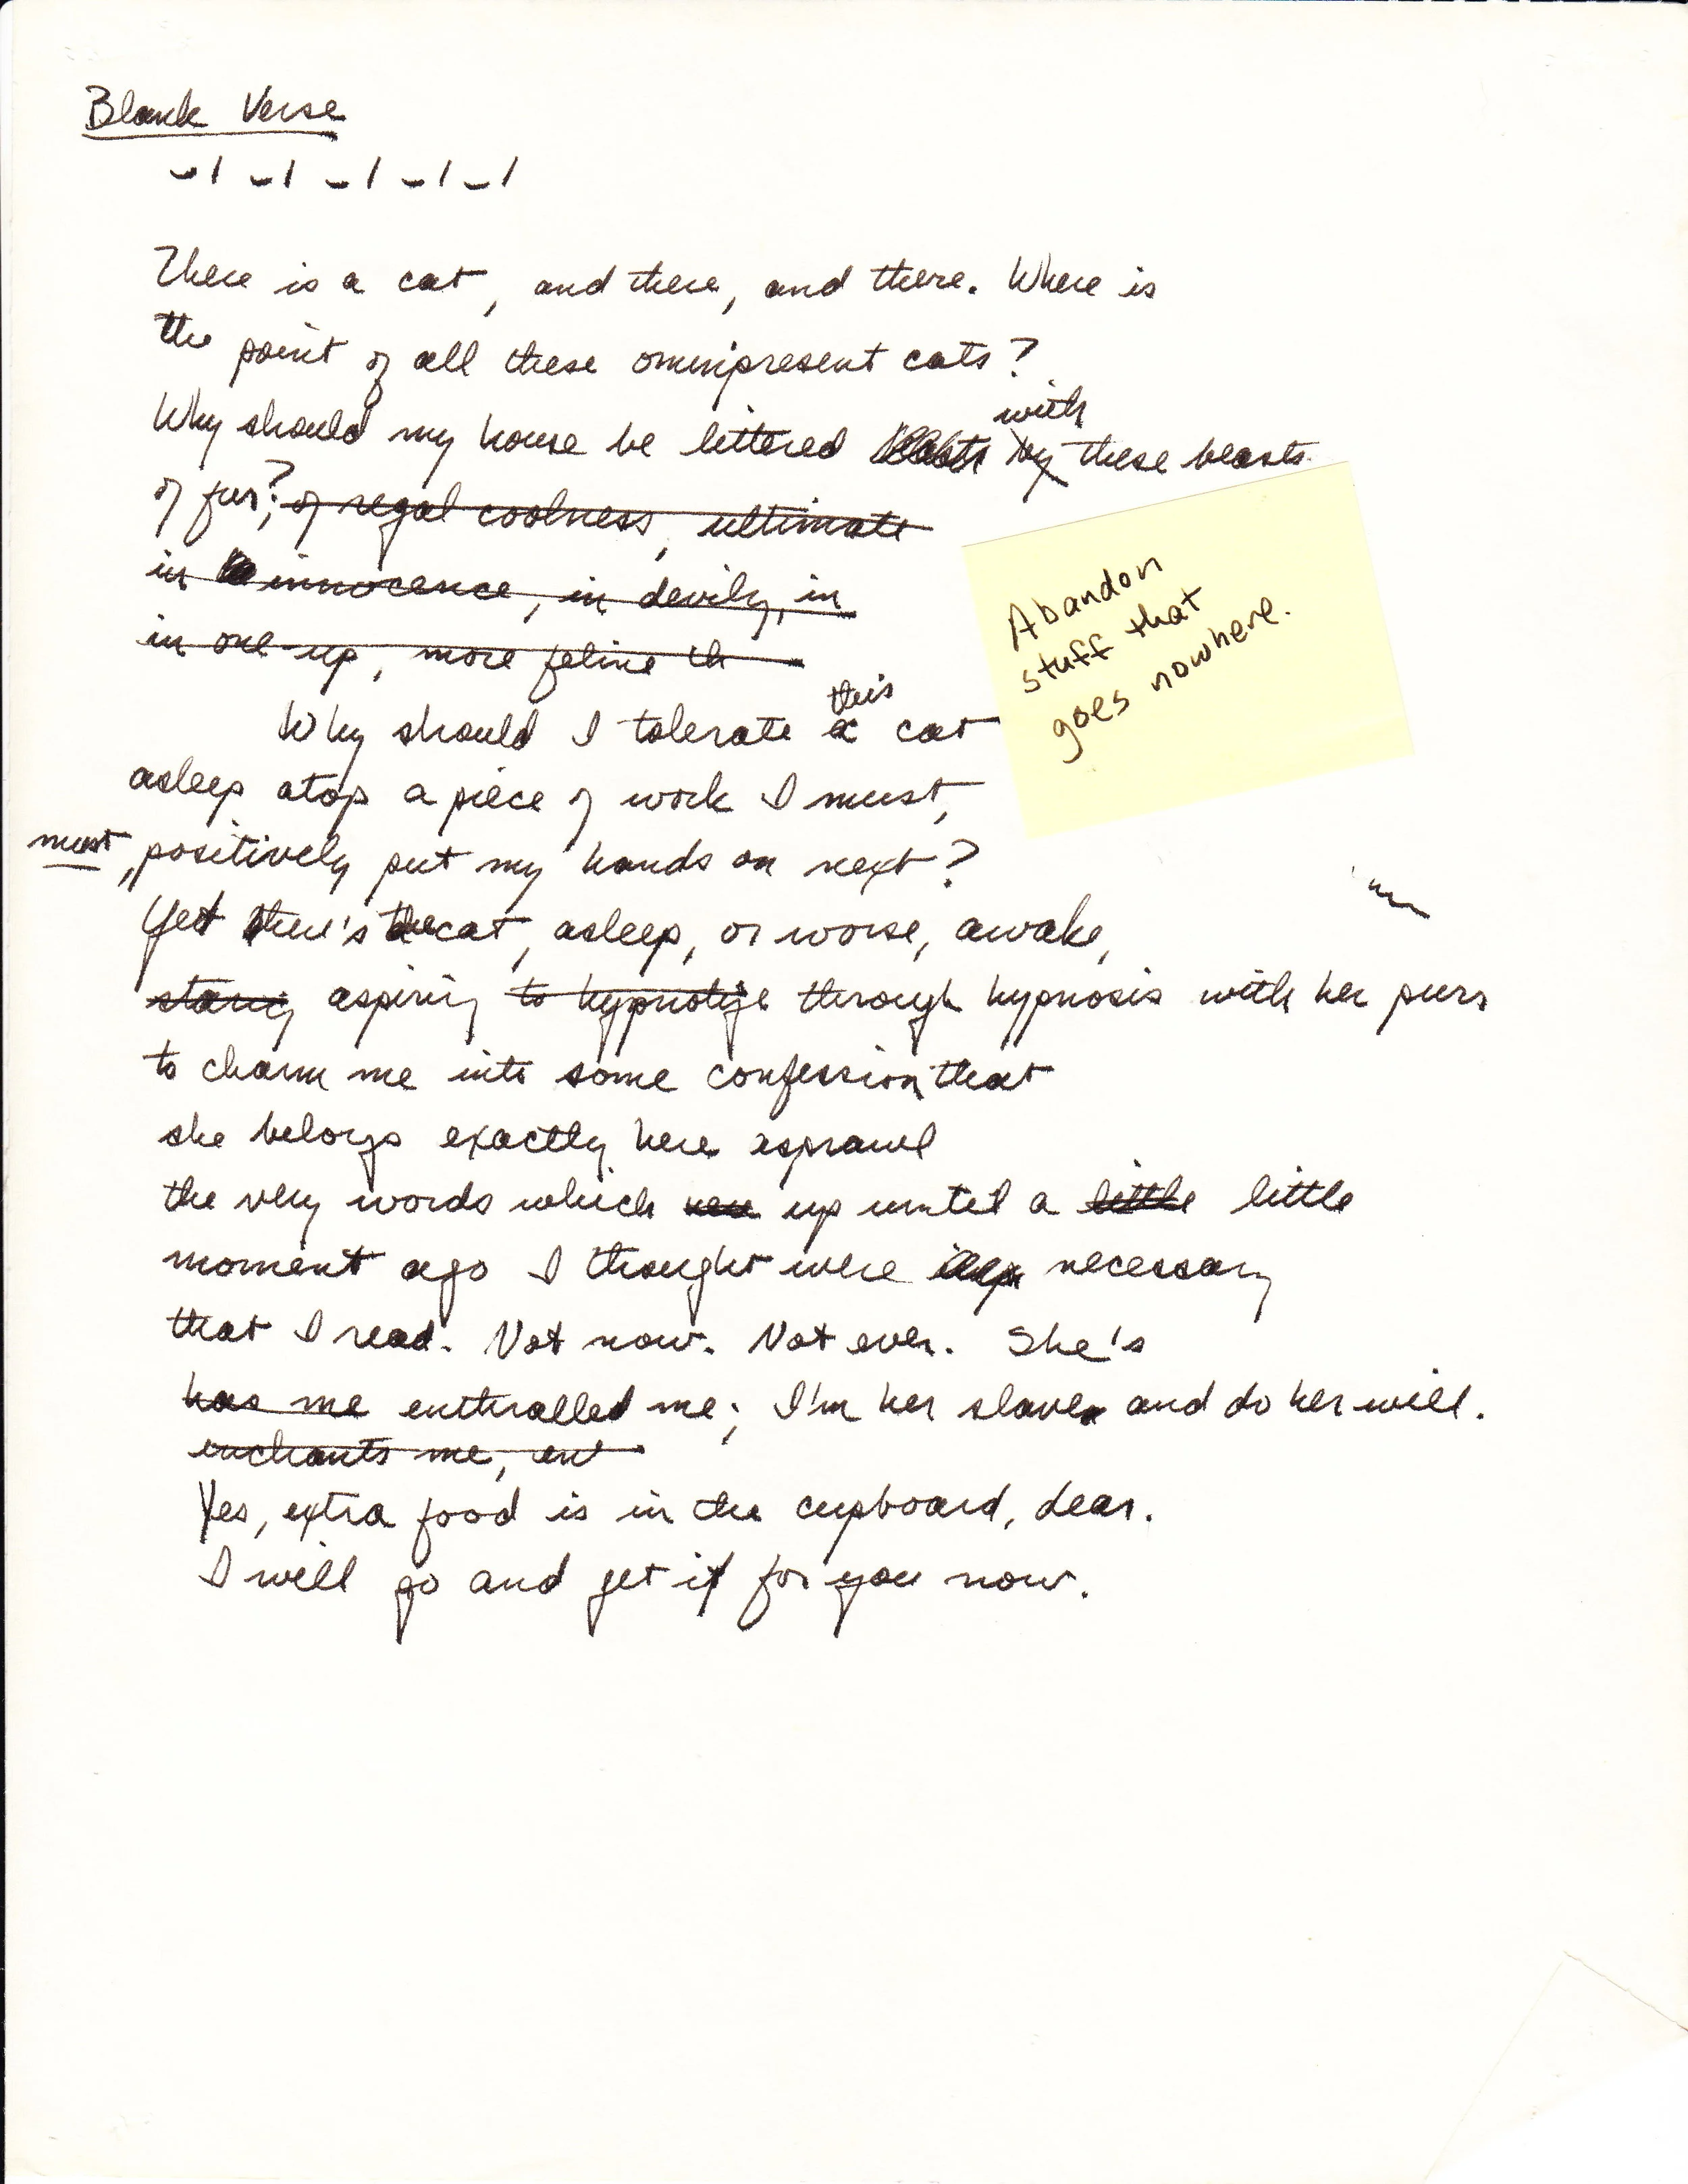 Blank Verse
There is a cat, and there, and there. Where is
the point of all these omnipresent cats?
with
Why should my house be littered by these beasts
of fur?; of regal coolness, ultimate
in innocence, in devilry, in
in one-up, more feline th
this
Why should I tolerate a cat
asleep atop a piece of work I must,
must, positively put my hands on next?
Yet there's the cat, asleep, or worse, awake,
staring aspiring to hypnotize through hypnosis with her purr
to charm me into some confession that
she belongs exactly here asprawl
the very words which up until a little little
moment ago I thought were necessary
that I read. Not now. Not ever. She's
has me enthralled me; I'm her slave and do her will.
enchants me, en
Yes, extra food is in the cupboard, dear.
I will go and get it for you now.
Abandon
stuff that
goes nowhere.